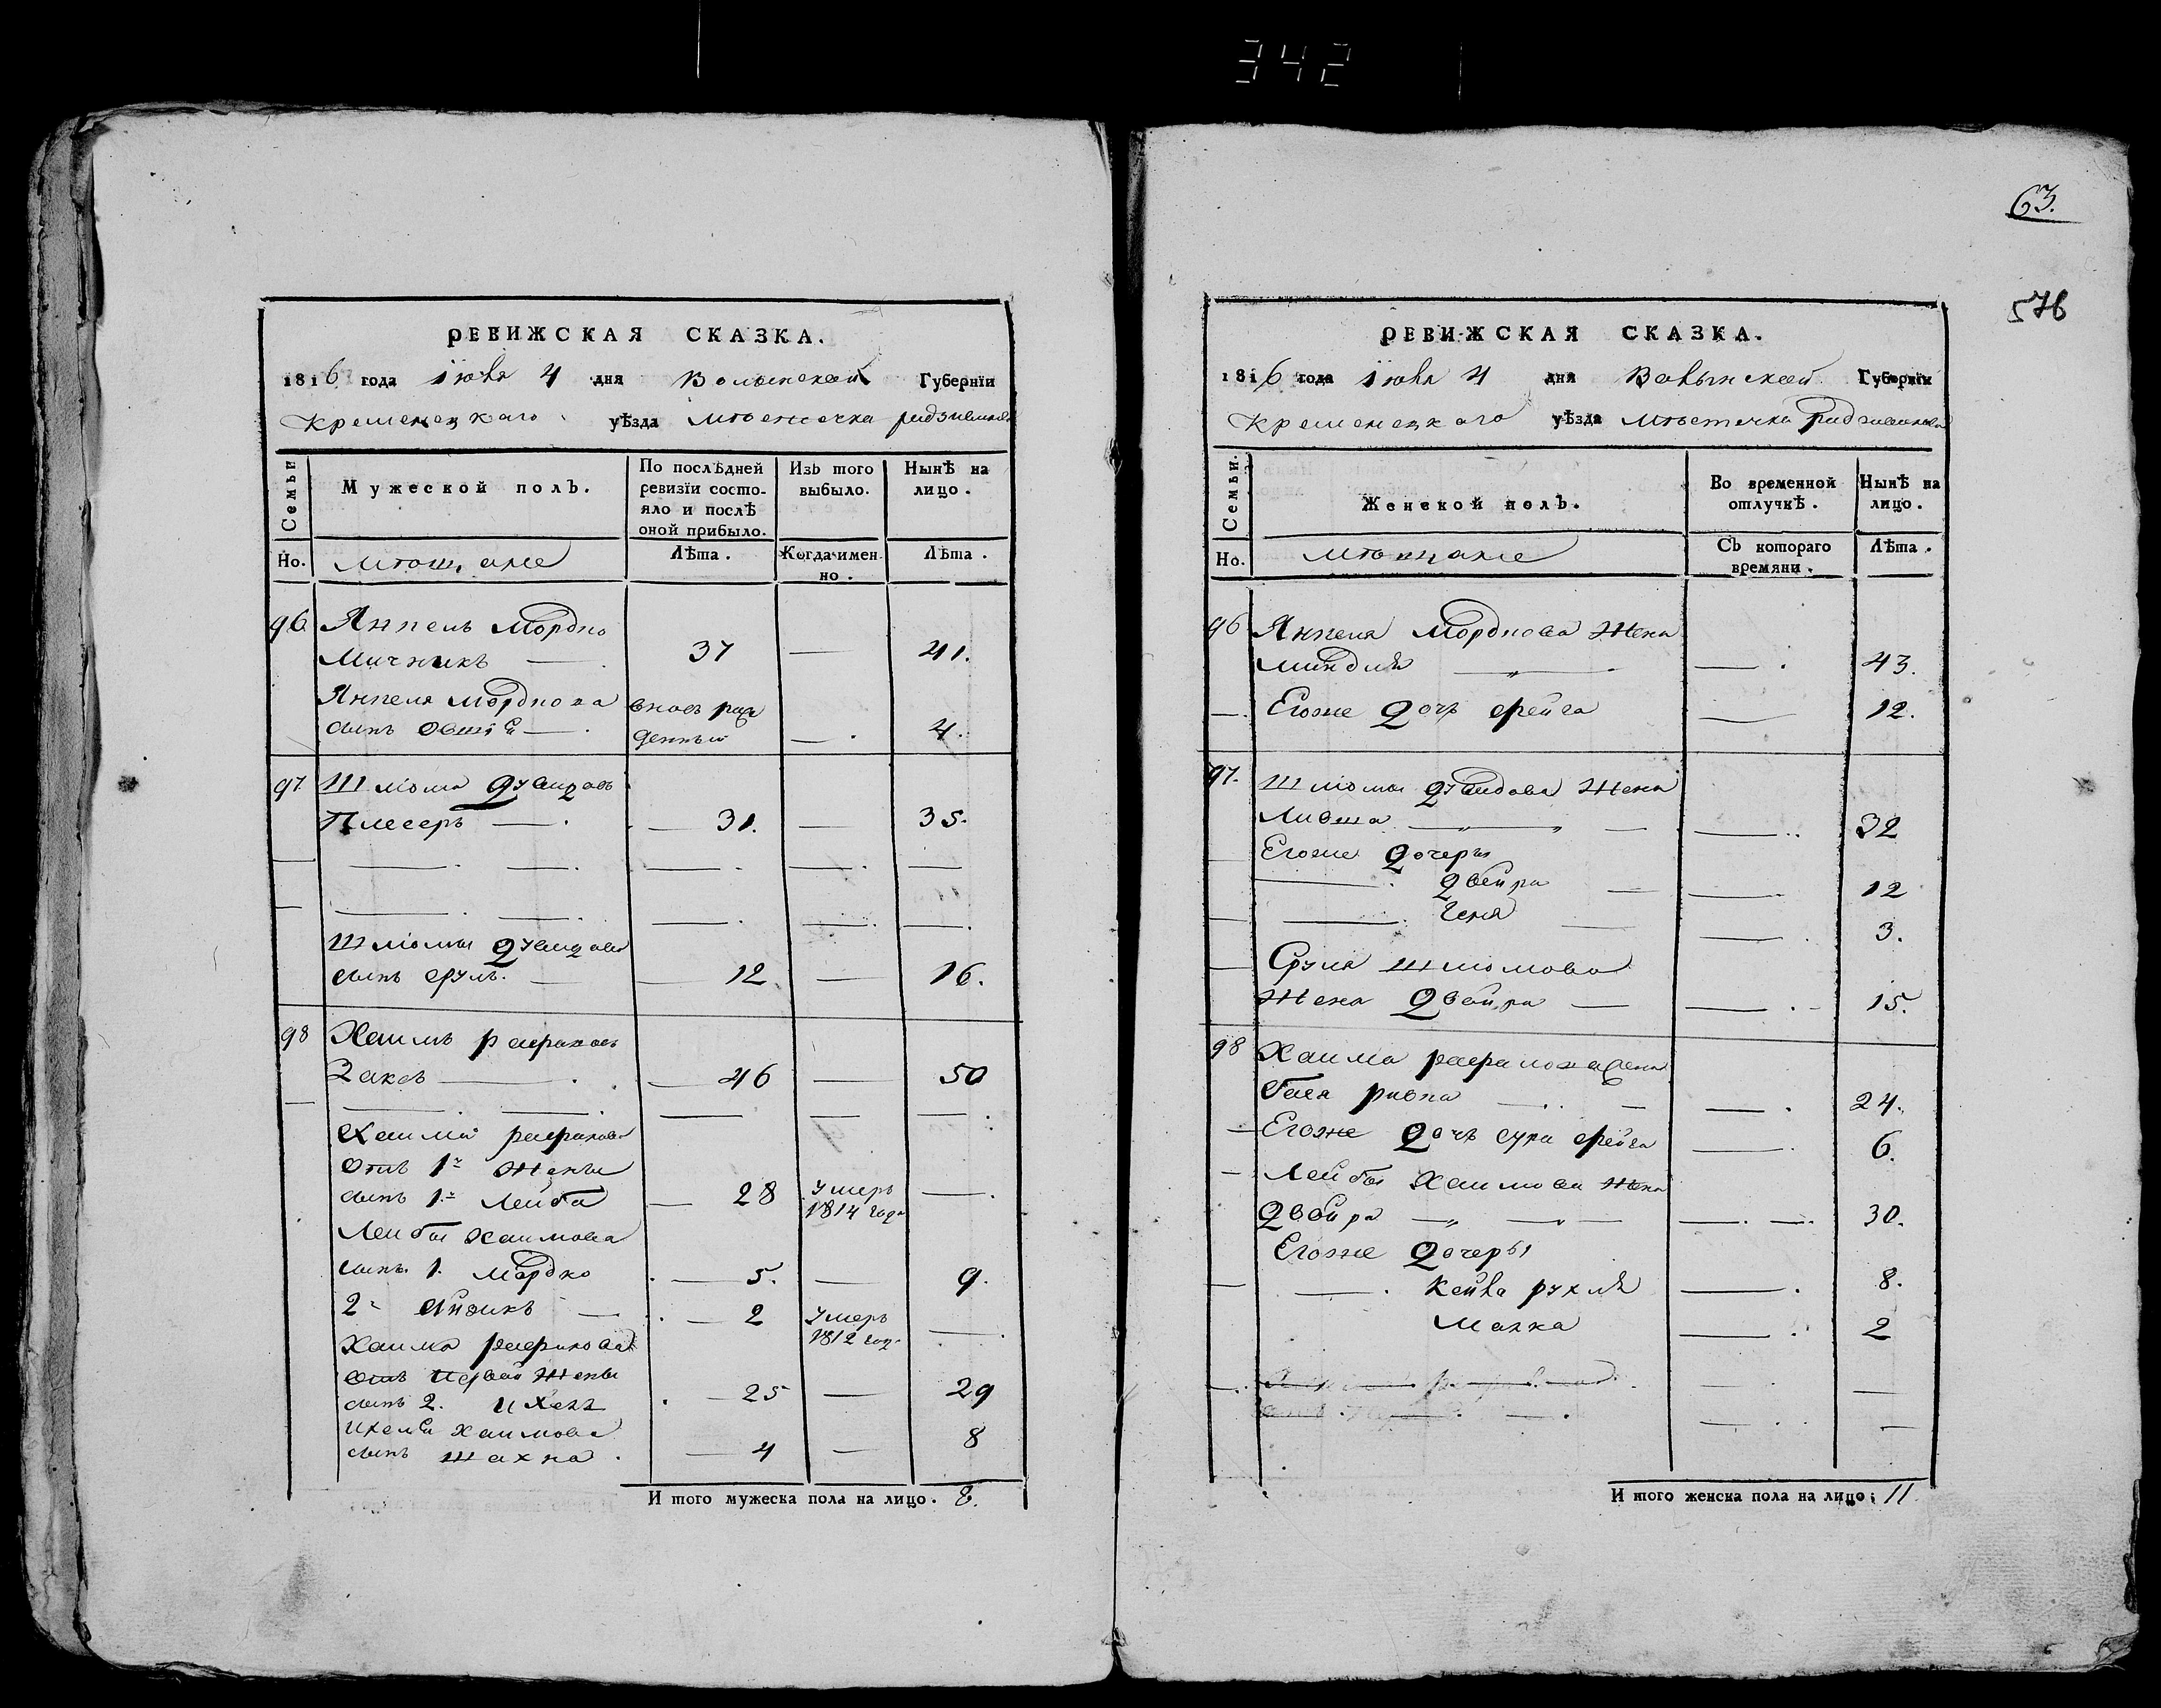 342
РЕВИЖСКАЯ СКАЗКА.
1816 года Іюня 4 дня Волынской Губернїи
Кременецкаго уѣзда мѣстечка
Семьи
Мужеской полъ.
По послѣдней ревизїи состо-
яло и послѣ оной прибыло.
Изъ того выбыло.
Нынѣ на лицо.
Но.
мѣщане
Лѣта.
Когда имен-
но.
Лѣта.
96 Янкель Мордко
Мичникъ — 37 — 41.
Янкеля Мордкова вновь рож
сынъ Овшїя — денный — 4.
97 Шліома Дувидовъ
Плесеръ — 31. — 35.
Шліомы Дувидова
сынъ Сруль. — 12. — 16.
98 Хаимъ Рафаловъ
Заксъ — 46 — 50
Хаима Рафалова
отъ 1й Жены
сынъ 1й Лейба — 28 умеръ 1814 года —
Лейбы Хаимова
сынъ 1. Мордко — 5. — 9.
2й Айзикъ — 2 умеръ 1812 год. —
Хаима Рафалова
отъ первой Жены
сынъ 2. Ихель — 25 — 29
Ихеля Хаимова
сынъ Шахна. — 4 — 8
И того мужеска пола на лицо. 8.
63.
576
РЕВИЖСКАЯ СКАЗКА.
1816 года Іюня 4 дня Волынской Губернїи
Кременецкаго уѣзда Мѣстечка
Семьи.
Женской полъ.
Во временной отлучкѣ.
Нынѣ на лицо.
Но.
мѣщане
Съ котораго времяни.
Лѣта.
96 Янкеля Мордкова Жена
Миндля — 43.
Егоже Дочь Фейга — 12.
97. Шліомы Дувидова Жена
Ливша — 32
Егоже Дочеры
Двейра — 12
Геня — 3.
Сруля Шліомова
Жена Двейра — 15.
98 Хаима Рафалова Жена
Бася Ривка — 24.
Егоже Дочь Сура Фейга — 6.
Лейбы Хаимова Жена
Двейра — 30.
Егоже Дочеры
Кейла Рухля — 8.
Малка — 2
И того женска пола на лицо; 11.